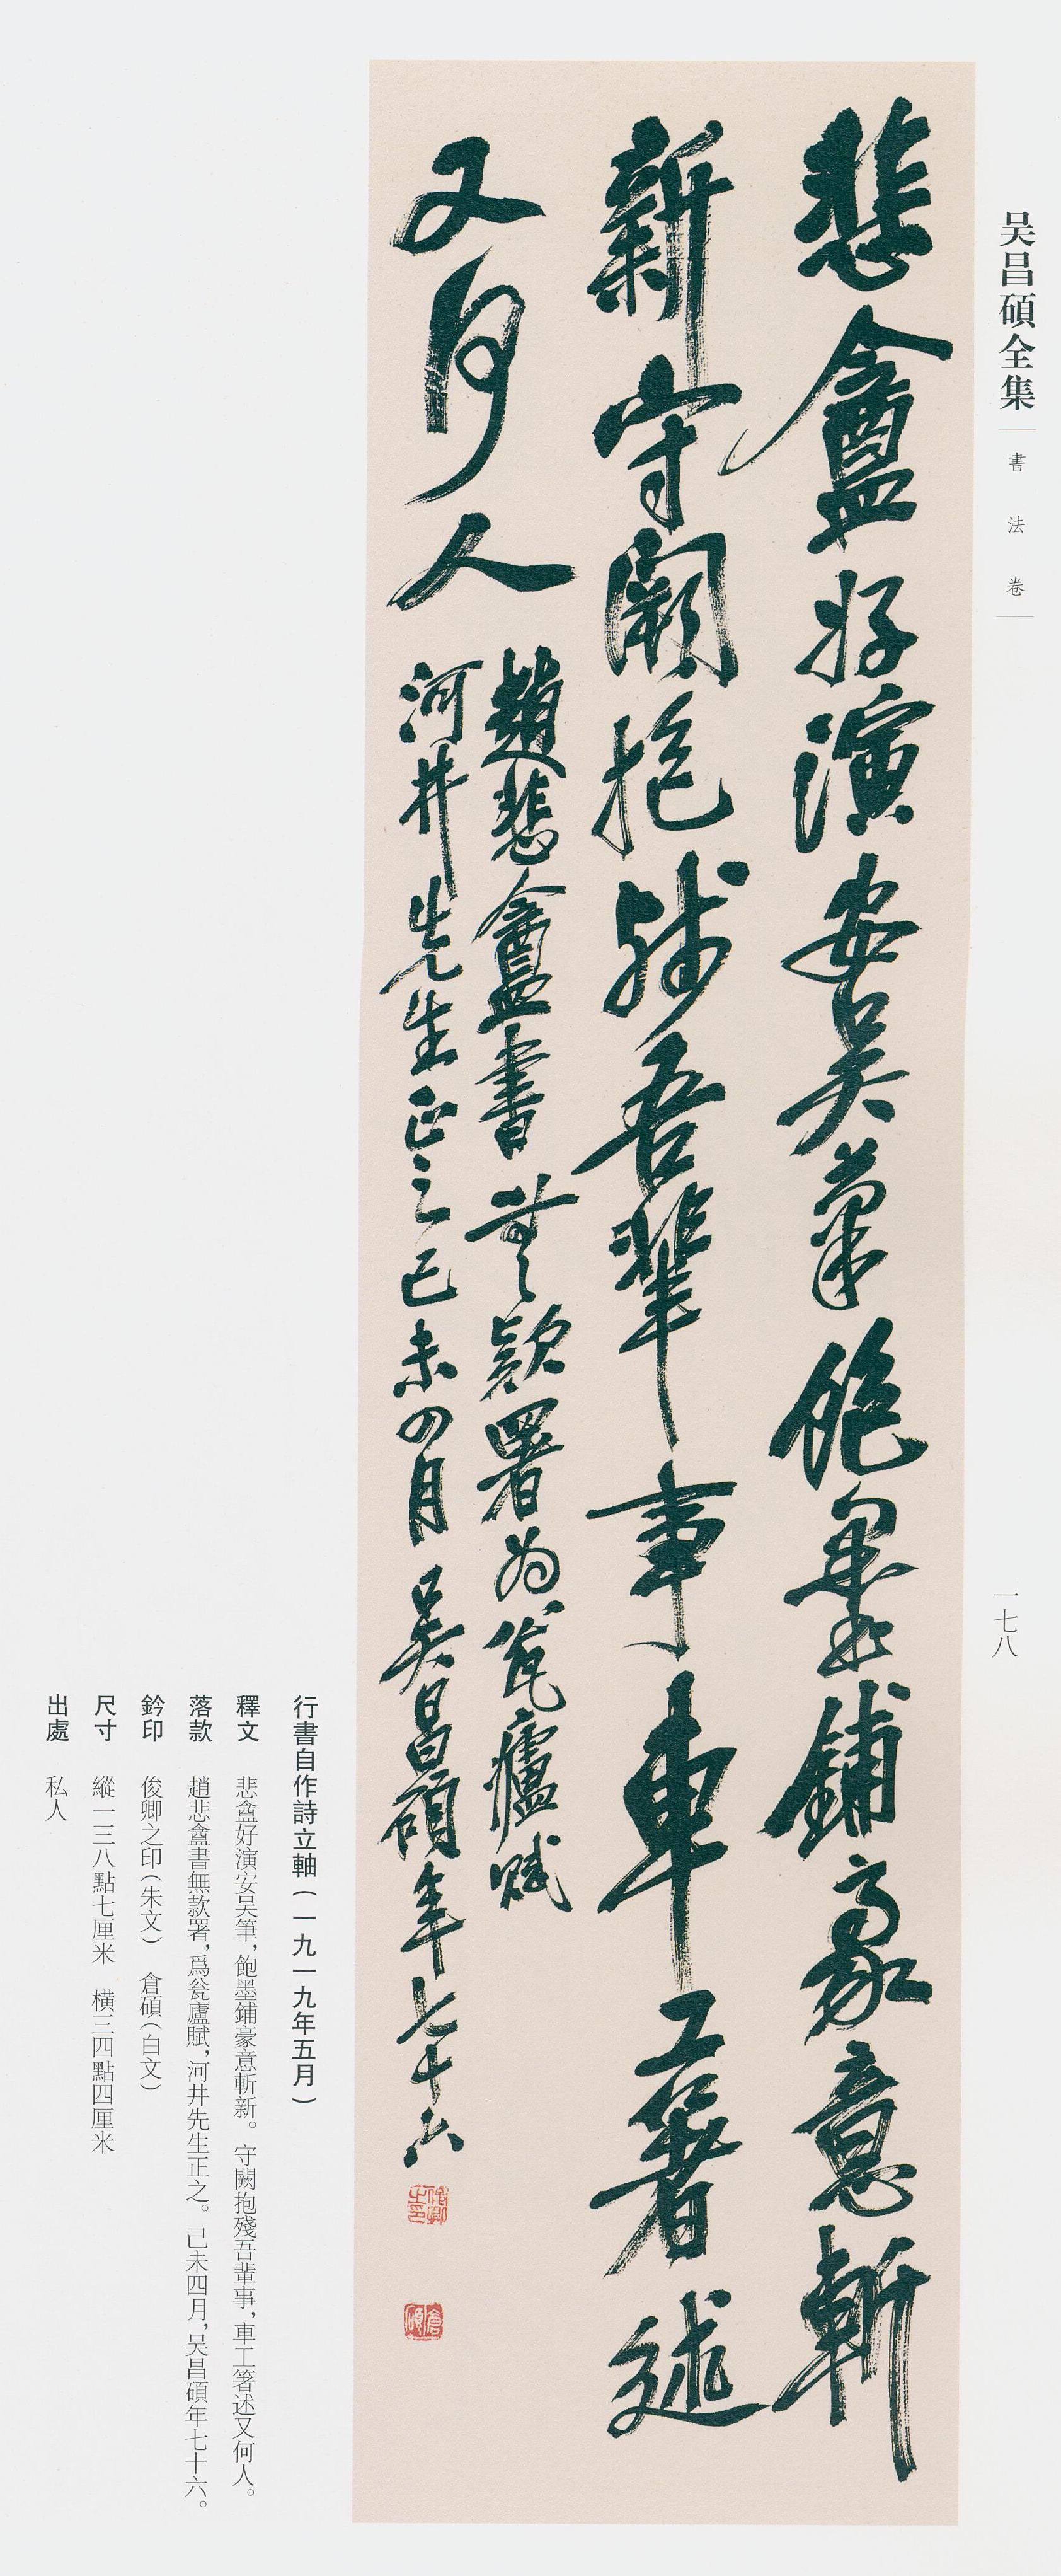 吴昌碩全集
書法卷
一七八
悲盦好演安吴筆飽墨鋪豪意斬
新守闕抱殘吾輩事車工著述
又何人
趙悲盦書無款署為瓮廬賦
河井先生正之己未四月吴昌碩年七十六
俊卿之印
倉碩
行書自作詩立軸(一九一九年五月)
釋文 悲盦好演安吴筆,飽墨鋪豪意斬新。守闕抱殘吾輩事,車工箸述又何人。
落款 趙悲盦書無款署,爲瓮廬賦,河井先生正之。己未四月,吴昌碩年七十六。
鈐印 俊卿之印(朱文) 倉碩(白文)
尺寸 縱一三八點七厘米 横三四點四厘米
出處 私人